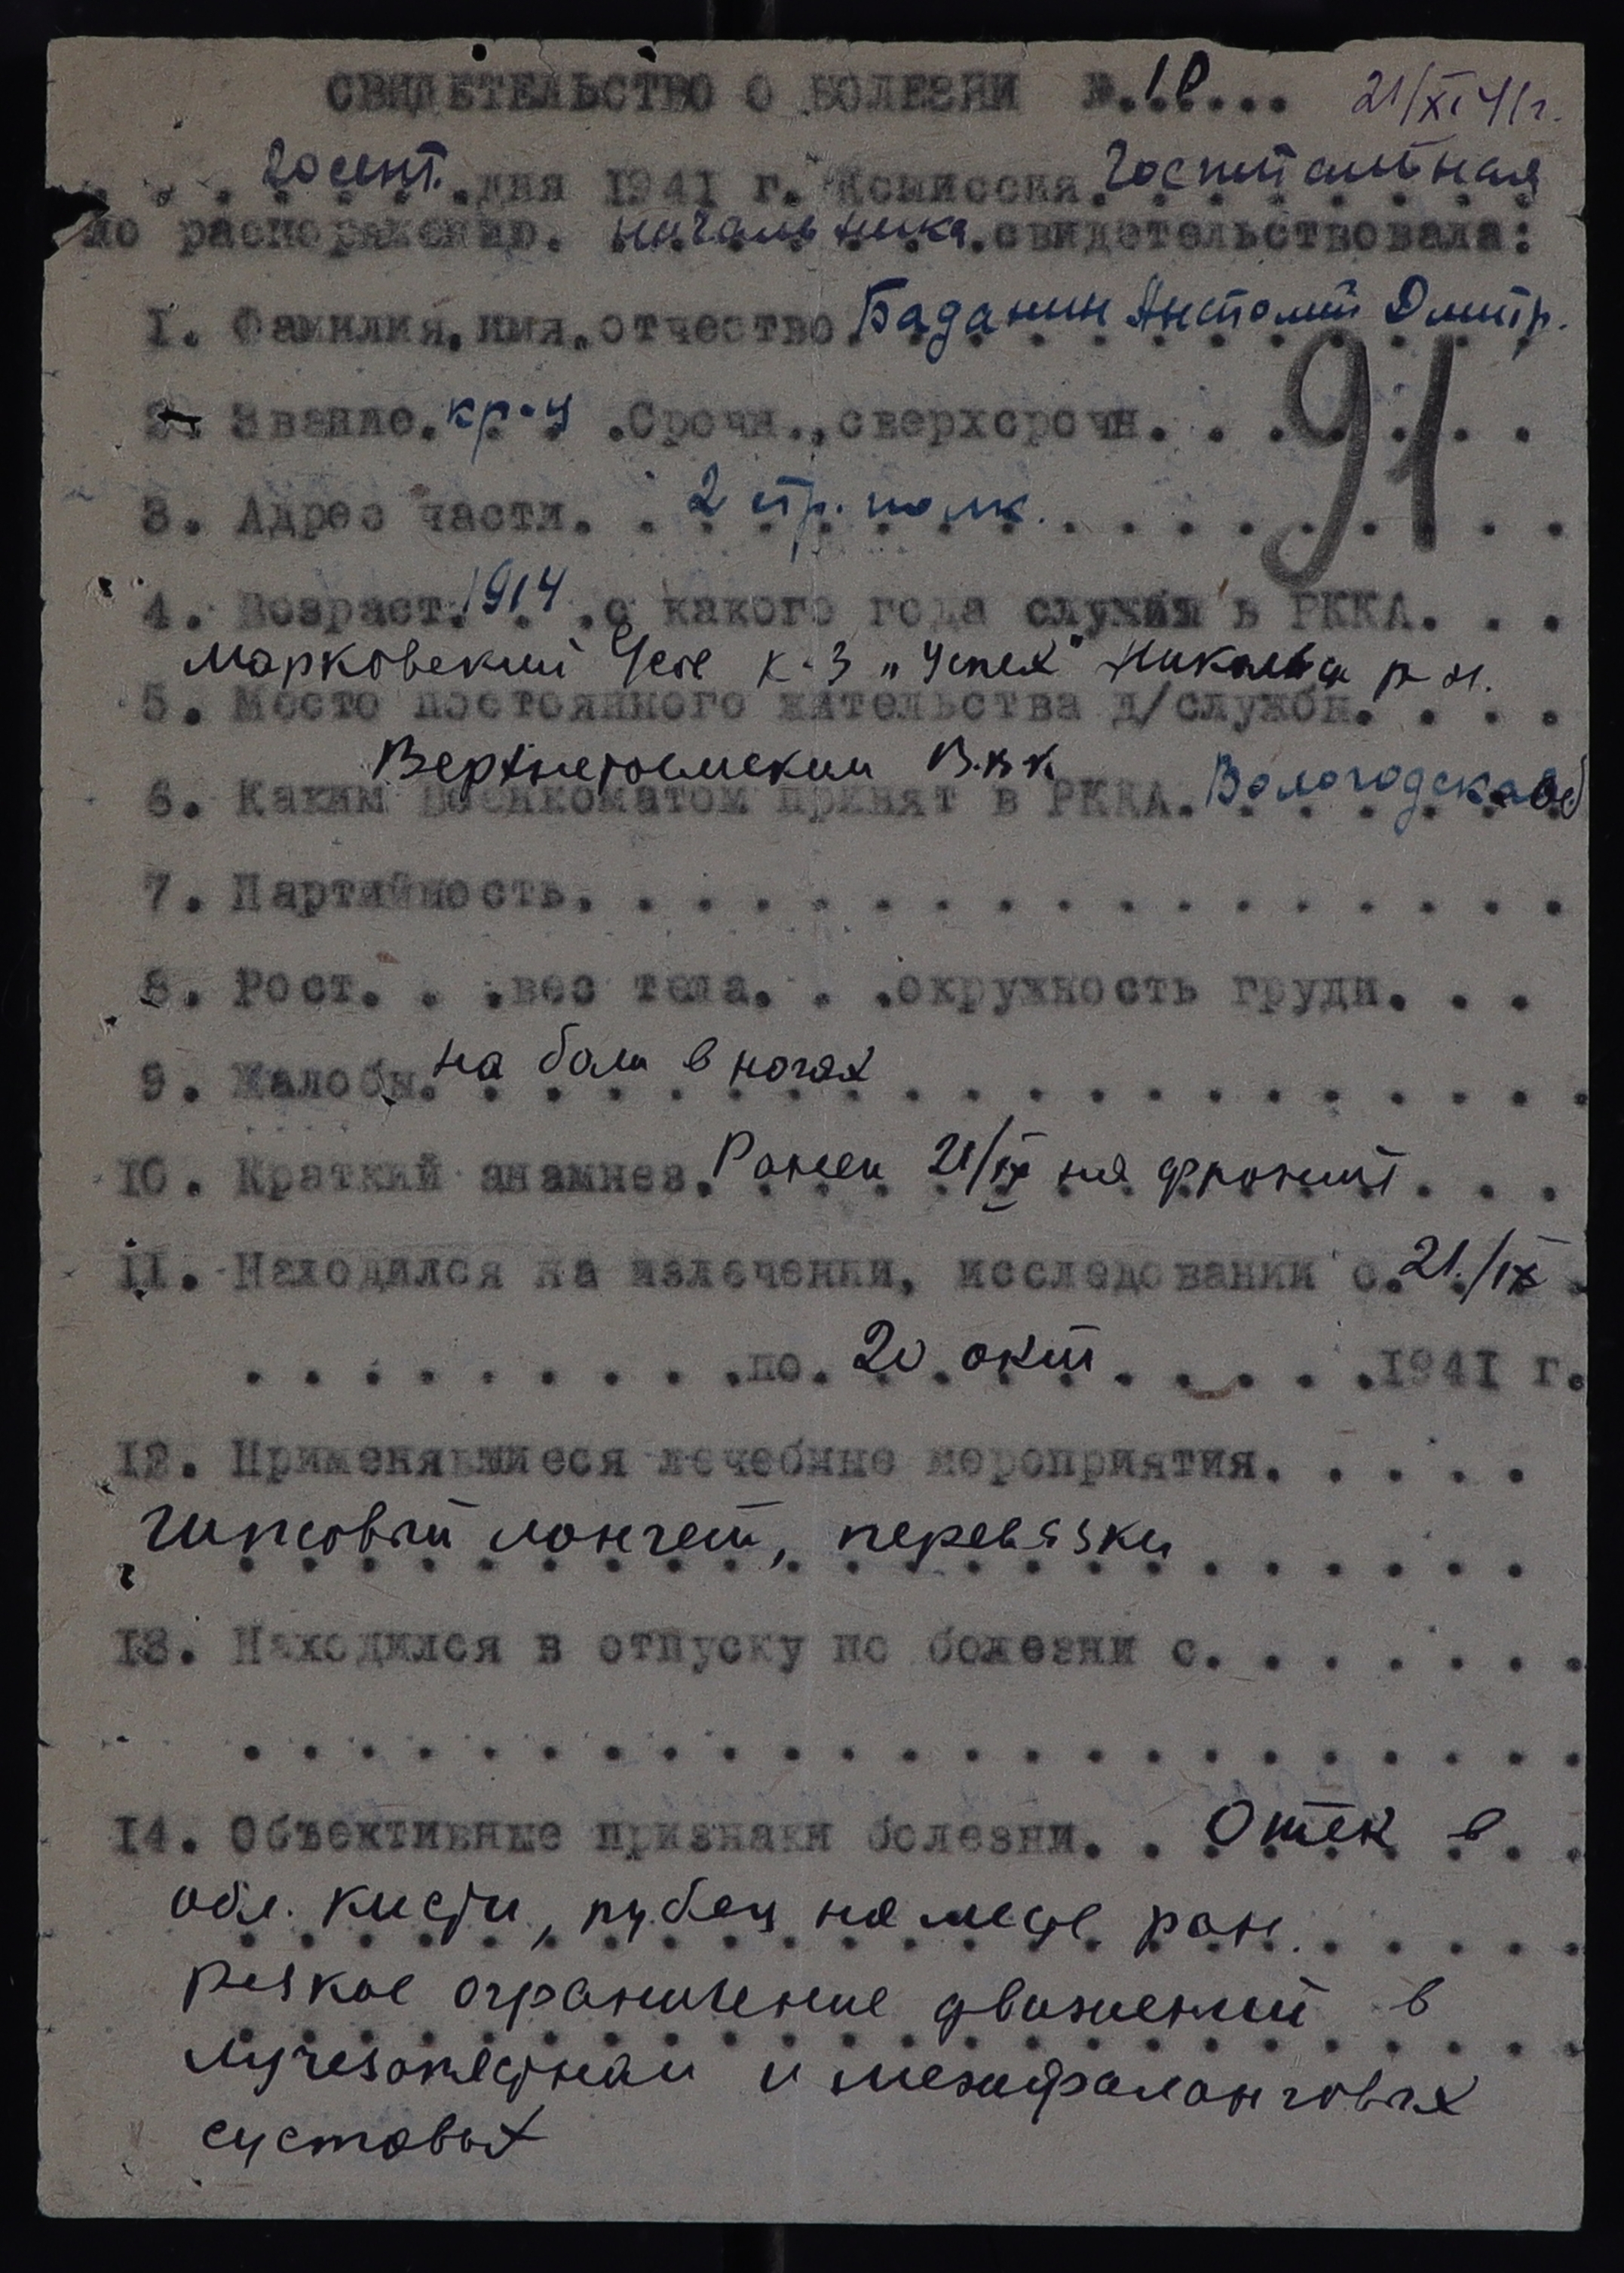 СВИДЕТЕЛЬСТВО О БОЛЕЗНИ №.10... 21/XI 41г.
. . . 20 сент. .дня 1941 г. Комиссия. Госпитальная
по распоряжению. начальника.свидетельствовала:
1. Фамилия,имя,отчество Баданин Анатолий Дмитр.
91
2. Звание.кр-ц .Срочн.,сверхсрочн. . . . . . .
3. Адрес части. . 2 стр. полк. . . . . . . . .
4. Возраст.1914 .с какого года служил в РККА. . .
Марковский с/с к-з „Успех" р-н.
5. Место постоянного жительства д/службы. . . .
Верхнетоемский В.к.
6. Каким военкоматом принят в РККА. Вологодская об
7. Партийность. . . . . . . . . . . . . . . . .
8. Рост. . .вес тела. . .окружность груди. . .
9. Жалобы. на боли в ногах . . . . . . . . . . .
10. Краткий анамнез. Ранен 21/IX на фронте . . .
11. Находился на излечении, исследовании с. 21./IX .
. . . . . . . . .по. 20 окт . . . . .1941 г.
12. Применявшиеся лечебные мероприятия. . . . .
Гипсовый лонгет, перевязки . . . . . .
13. Находился в отпуску по болезни с. . . . . . .
. . . . . . . . . . . . . . . . . . . . . . .
14. Объективные признаки болезни. . Отек в
обл. кисти, рубец на месте ран. . . . . .
резкое ограничение движений в
лучезапястном и межфаланговых
суставах